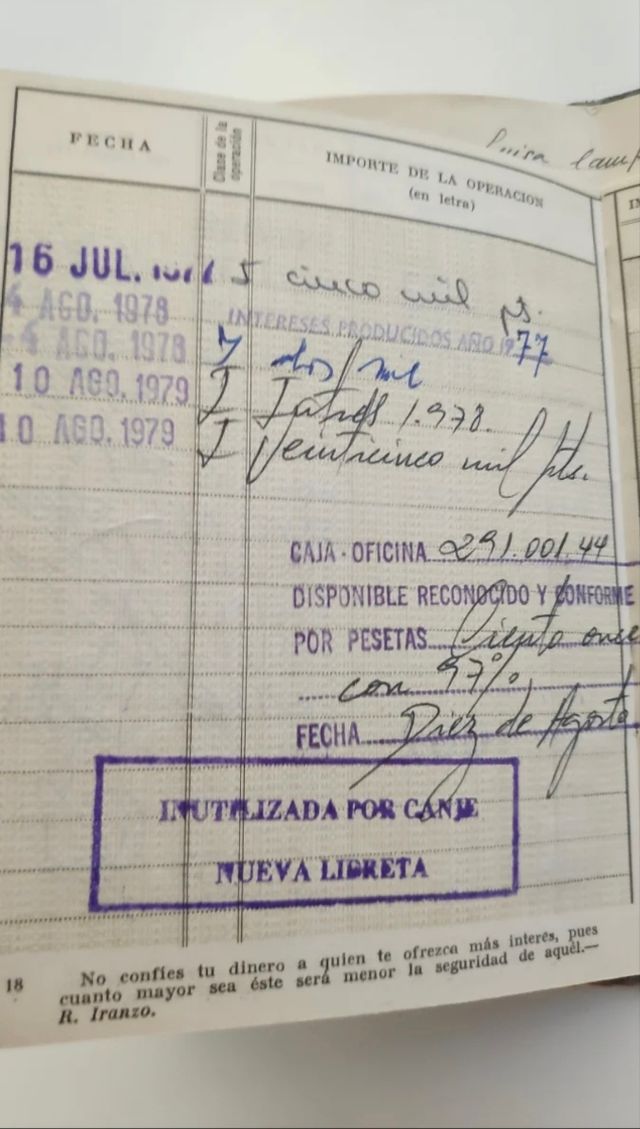 FECHA
Clase de la operación
IMPORTE DE LA OPERACION
(en letra)
16 JUL. 5 cinco mil pts.
4 AGO. 1978 INTERESES PRODUCIDOS AÑO 1977
4 AGO. 1978 7 dos mil
10 AGO. 1979 I 1.978.
10 AGO. 1979 I Veinticinco mil pts.
CAJA - OFICINA 291.001.44
DISPONIBLE RECONOCIDO Y CONFORME
POR PESETAS Ciento once
con 97%
FECHA Diez de Agosto
INUTILIZADA POR CANJE
NUEVA LIBRETA
18 No confíes tu dinero a quien te ofrezca más interés, pues
cuanto mayor sea éste será menor la seguridad de aquél.—
R. Iranzo.